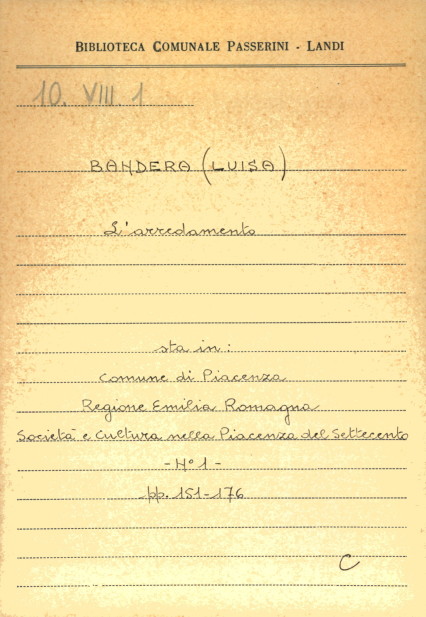 BIBLIOTECA COMUNALE PASSERINI - LANDI
10. VIII. 1
BANDERA (LUISA)
L'arredamento
sta in:
Comune di Piacenza
Regione Emilia Romagna
Società e Cultura nella Piacenza del Settecento
- N° 1 -
pp. 151-176
C